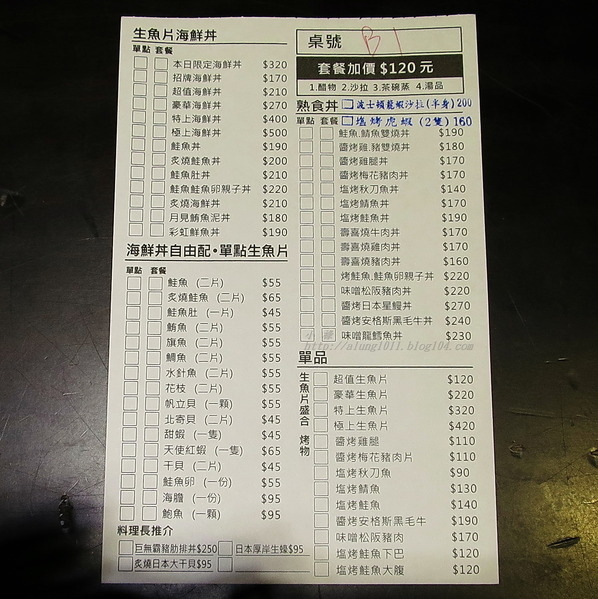 生魚片海鮮丼
單點 套餐
本日限定海鮮丼 $320
招牌海鮮丼 $170
超值海鮮丼 $210
豪華海鮮丼 $270
特上海鮮丼 $400
極上海鮮丼 $500
鮭魚丼 $190
炙燒鮭魚丼 $200
鮭魚肚丼 $210
鮭魚鮭魚卵親子丼 $220
炙燒海鮮丼 $210
月見鮪魚泥丼 $180
彩虹鮮魚丼 $190
海鮮丼自由配•單點生魚片
單點 套餐
鮭魚 (二片) $55
炙燒鮭魚 (二片) $65
鮭魚肚 (一片) $45
鮪魚 (二片) $55
旗魚 (二片) $55
鯛魚 (二片) $55
水針魚 (二片) $55
花枝 (二片) $55
帆立貝 (一顆) $55
北寄貝 (二片) $45
甜蝦 (一隻) $45
天使紅蝦 (一隻) $65
干貝 (二片) $45
鮭魚卵 (一份) $55
海膽 (一份) $95
鮑魚 (一顆) $95
料理長推介
巨無霸豬肋排丼$250 日本厚岸生蠔$95
炙燒日本大干貝$95
桌號 B1
套餐加價 $120元
1.醋物 2.沙拉 3.茶碗蒸 4.湯品
熟食丼 波士頓龍蝦沙拉(半身)200
單點 套餐 塩烤虎蝦(2隻)160
鮭魚.鯖魚雙燒丼 $190
醬烤雞.豬雙燒丼 $180
醬烤雞腿丼 $170
醬烤梅花豬肉丼 $170
塩烤秋刀魚丼 $140
塩烤鯖魚丼 $170
塩烤鮭魚丼 $190
壽喜燒牛肉丼 $170
壽喜燒雞肉丼 $170
壽喜燒豬肉丼 $160
烤鮭魚.鮭魚卵親子丼 $220
味噌松阪豬肉丼 $220
醬烤日本星鰻丼 $270
醬烤安格斯黑毛牛丼 $240
味噌龍鱈魚丼 $230
http://alung1011.blog104.com
單品
生魚片盛合
超值生魚片 $120
豪華生魚片 $220
特上生魚片 $320
極上生魚片 $420
烤物
醬烤雞腿 $110
醬烤梅花豬肉片 $110
塩烤秋刀魚 $90
塩烤鯖魚 $130
塩烤鮭魚 $140
醬烤安格斯黑毛牛 $190
味噌松阪豬肉 $170
塩烤鮭魚下巴 $120
塩烤鮭魚大腹 $120